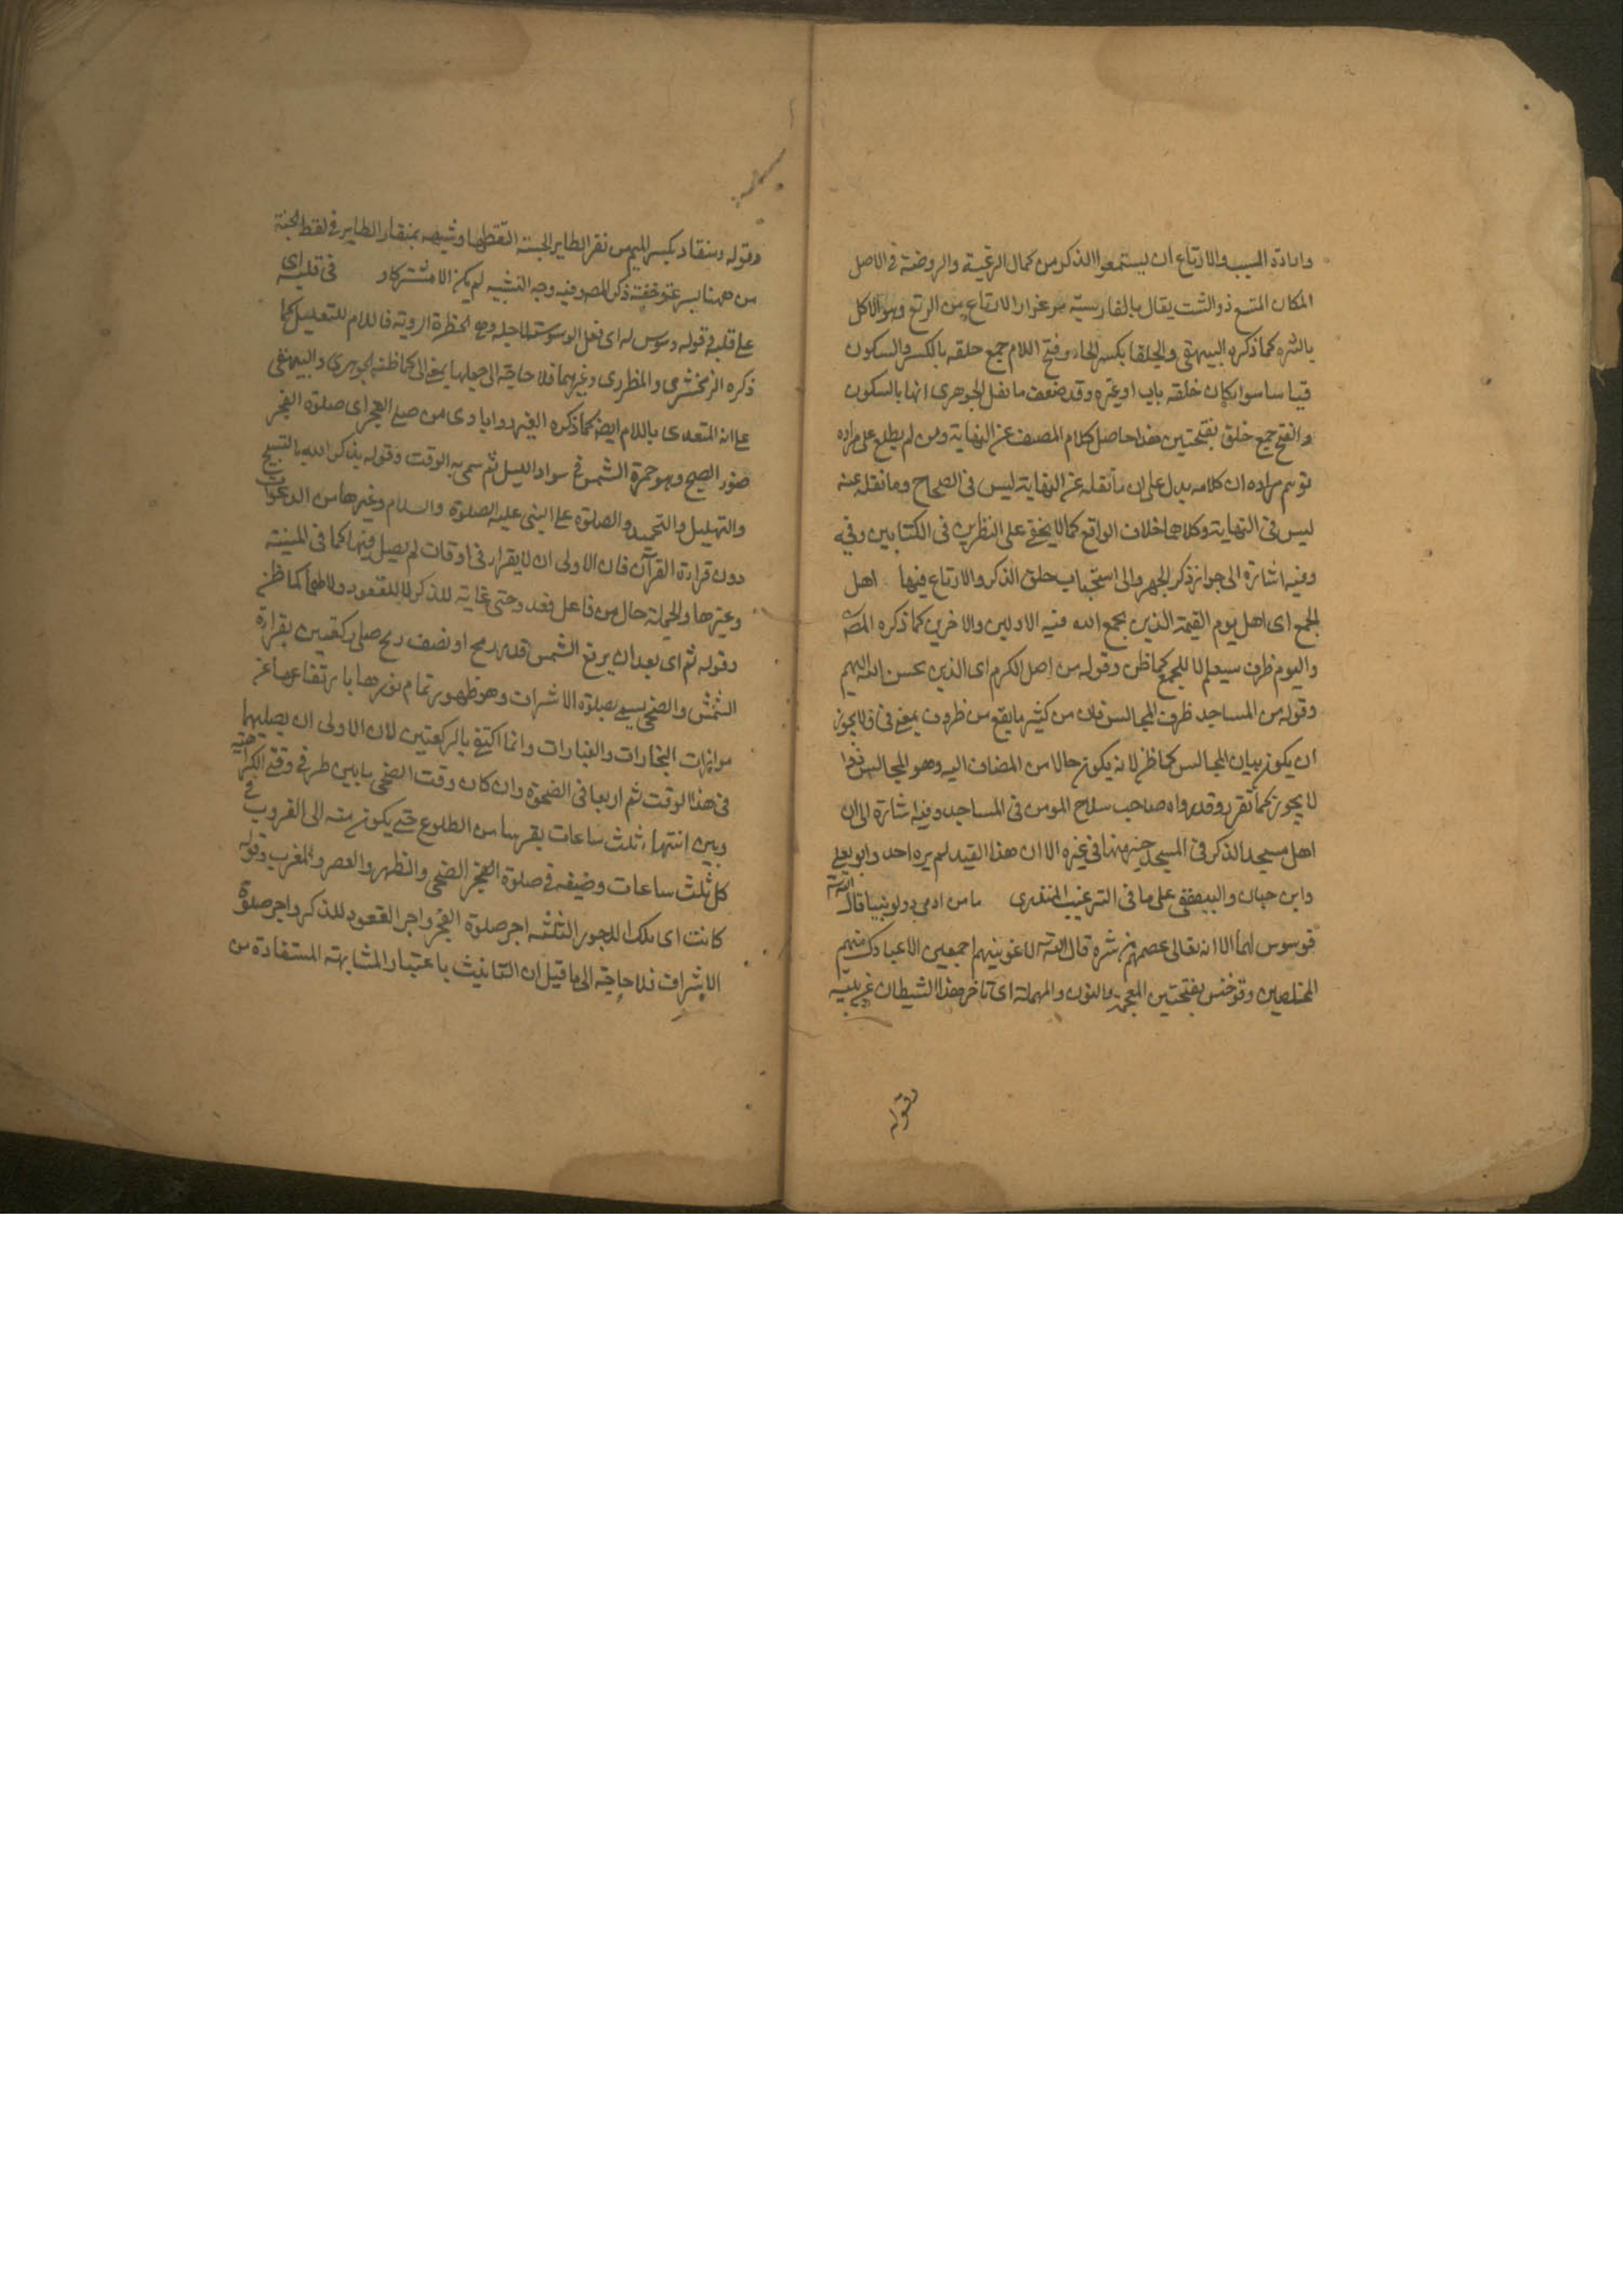 وارادة المسبب والارتاع ان يستمعوا الذكر من كمال الرغبة والروضة فى الاصل
المكان المتسع ذو النبت يقال بالفارسية مرغزار الارتاع من الرتع وهو الاكل
بالشره كما ذكره البيهقى والحلقا بكسر الحاء وفتح اللام جمع حلقه بالكسر والسكون
قياسا سوا كان خلقه باب او غيره وقد ضعف ما نقل الجوهرى انها بالسكون
والفتح جمع حلق بفتحتين هذا حاصل كلام المصنف عن النهاية ومن لم يطلع على مراده
توهم مراده ان كلامه يدل على ان ما نقله عن النهاية ليس فى الصحاح وما نقله عنه
ليس فى النهاية وكلاهما خلاف الواقع كما لا يخفى على الناظرين فى الكتابين وفيه
وفيه اشارة الى جواز ذكر الجهر والى استحباب حلق الذكر والارتاع فيها اهل
الجمع اى اهل يوم القيمة الذين يجمع الله فيه الاولين والاخرين كما ذكره المص
واليوم ظرف سيعلم لا للجمع كما ظن وقوله من اهل الكرم اى الذين يحسن الله اليهم
وقوله من المساجد ظرف المجالس فان من كثيرا ما يقع من ظروف بمعنى فى فلا يجوز
ان يكون بيان المجالس كما ظن لانه يكون حالا من المضاف اليه وهو المجالس
لا يجوز كما تقرر وقد رواه صاحب سلاح المومن فى المساجد وفيه اشارة الى ان
اهل مسجد الذكر فى المسجد خير منها فى غيره الا ان هذا القيد لم يره احد وابو يعلى
وابن حبان والبيهقى على ما فى الترغيب المنذرى ما من ادمى ولو نبيا قال
فوسوس لهما الا انه تعالى عصمهم من شره قال الله لاغوينهم اجمعين الا عبادك منهم
المخلصين وقوله خنس بفتحتين المعجمة والنون والمهملة اى تاخر هذا الشيطان
وقوله
وقوله منقاد بكسر الميم من نقر الطاير الحبة التقطها وشبهه بمنقار الطاير فى لقط الحبة
من ههنا بسرعة وخفة ذكر المص فيه وجه التشبيه لم يكن الا مشتركا و فى قلبه اى
على قلبه فى قوله وسوس له اى فعل الوسوسة لاجله وهى الخطرة الردية فاللام للتعليل كما
ذكره الزمخشرى والمطرزى وغيرهما فلا حاجة الى جعلها بمعنى الى كما ظنه الجوهرى والبيهقى
على انه المتعدى باللام ايضا كما ذكره الفيروزابادى من صلى الفجر اى صلوة الفجر
ضوء الصبح وهو حمرة الشمس فى سواد الليل ثم سمى به الوقت وقوله يذكر الله بالتسبيح
والتهليل والتحميد والصلوة على النبى عليه الصلوة والسلام وغيرها من الدعوات
دون قراءة القرآن فان الاولى ان لا يقرا فى اوقات لم يصل فيها كما فى المنية
وغيرها والجملة حال من فاعل قعد وحتى غاية للذكر لا للقعود ولا لهما كما ظن
وقوله ثم اى بعد ان يرتفع الشمس قدر رمح او نصف رمح صلى ركعتين بقراءة
الشمس والضحى يسمى بصلوة الاشراق وهو ظهور تمام نورها بارتفاعها عن
موازات البخارات والغبارات وانما اكتفى بالركعتين لان الاولى ان يصليهما
فى هذا الوقت ثم اربعا فى الضحوة وان كان وقت الضحى ما بين طرفى وقتى الكراهية
وبين انتهاء ثلث ساعات بقربها من الطلوع حتى يكون منه الى الغروب فى
كل ثلث ساعات وضيفه فى صلوة الفجر الضحى والظهر والعصر والمغرب وقوله
كانت اى تلك الاجور الثلثة اجر صلوة الفجر واجر القعود للذكر واجر صلوة
الاشراق فلا حاجة الى ما قيل ان التانيث باعتبار المشابهة المستفادة من